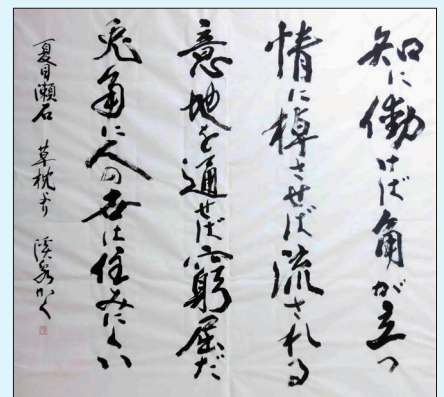 知に働けば角が立つ
情に棹させば流される
意地を通せば窮屈だ
兎角に人の世は住みにくい
夏目漱石 草枕より 溪泉かく